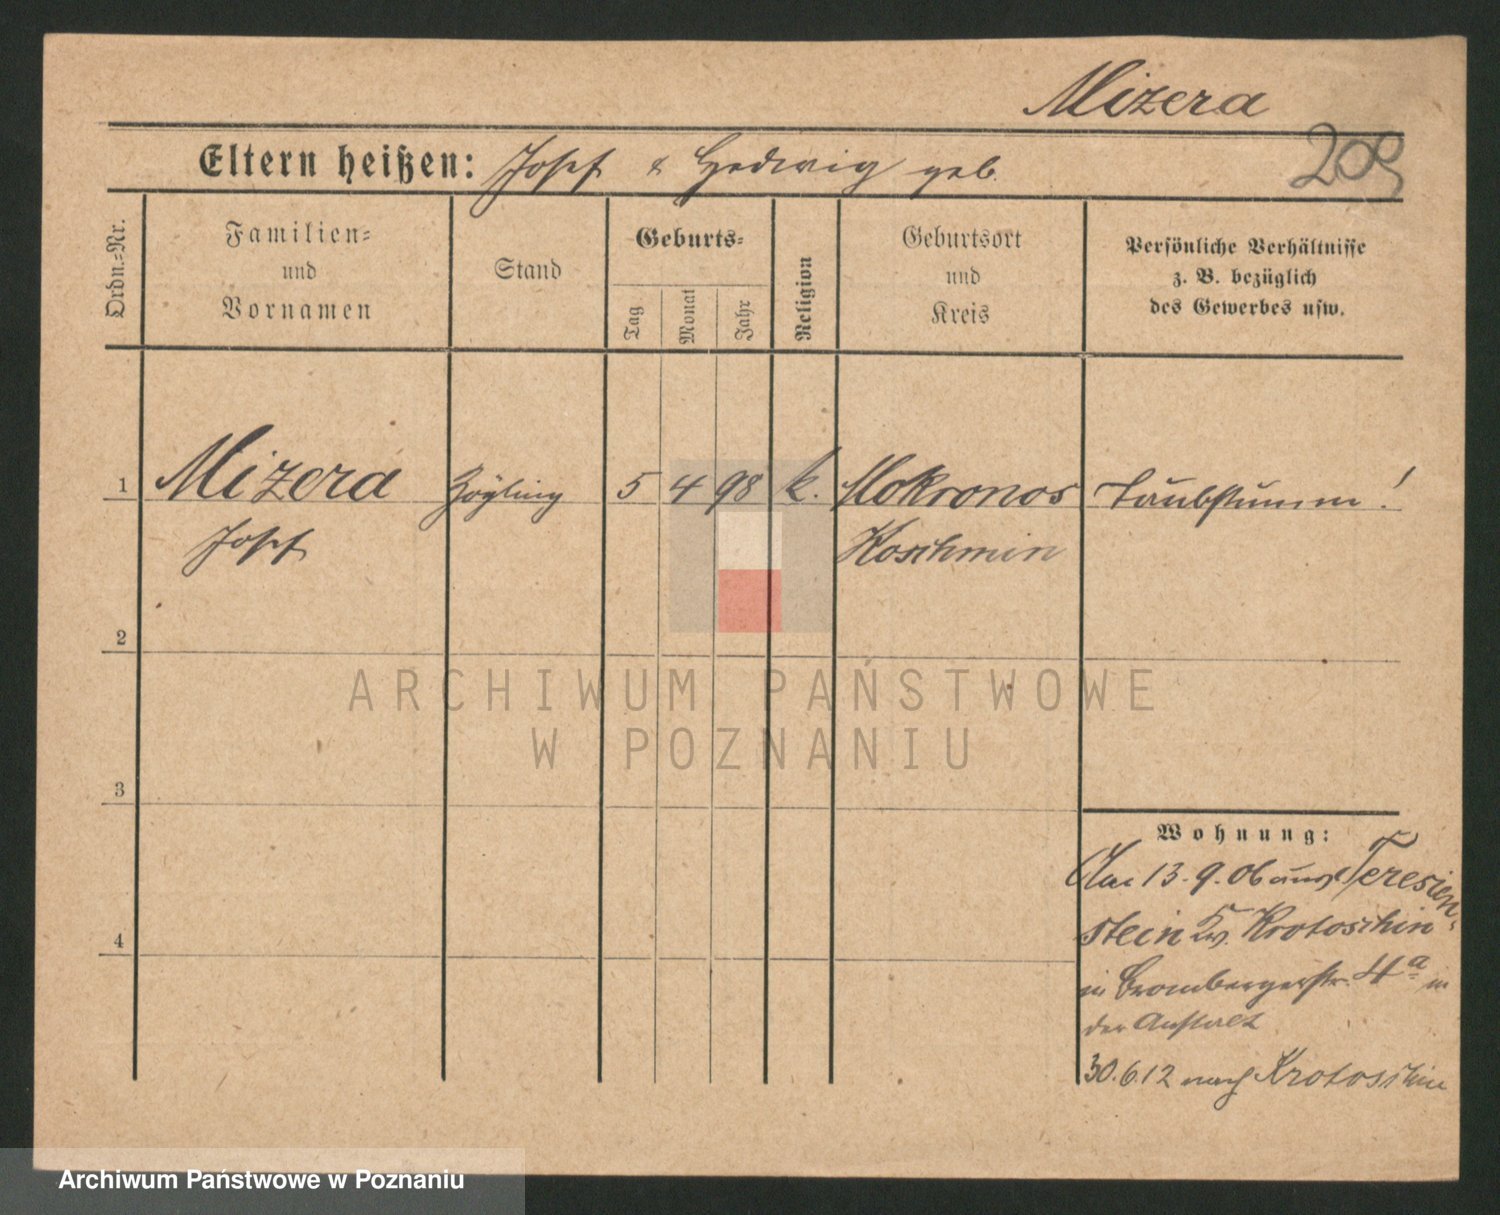 Mizera
205
Eltern heißen: Josef & Hedwig geb.
Ordn.-Nr.
Familien-
und
Vornamen
Stand
Geburts-
Tag
Monat
Jahr
Religion
Geburtsort
und
Kreis
Persönliche Verhältnisse
z. B. bezüglich
des Gewerbes usw.
1 Mizera Zögling 5 4 98 k. Mokronos Taubstumm!
Josef Koschmin
2
ARCHIWUM PAŃSTWOWE
W POZNANIU
3
Wohnung:
Am 13.9.06 aus Teresien-
stein Kr. Krotoschin
4
in Brombergerstr. 4a in
der Anstalt
30.6.12 nach Krotoschin
Archiwum Państwowe w Poznaniu